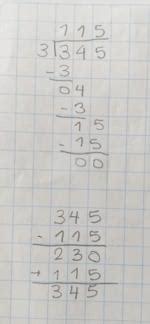 115
3)345
-3
04
-3
15
-15
00
345
-115
230
+115
345